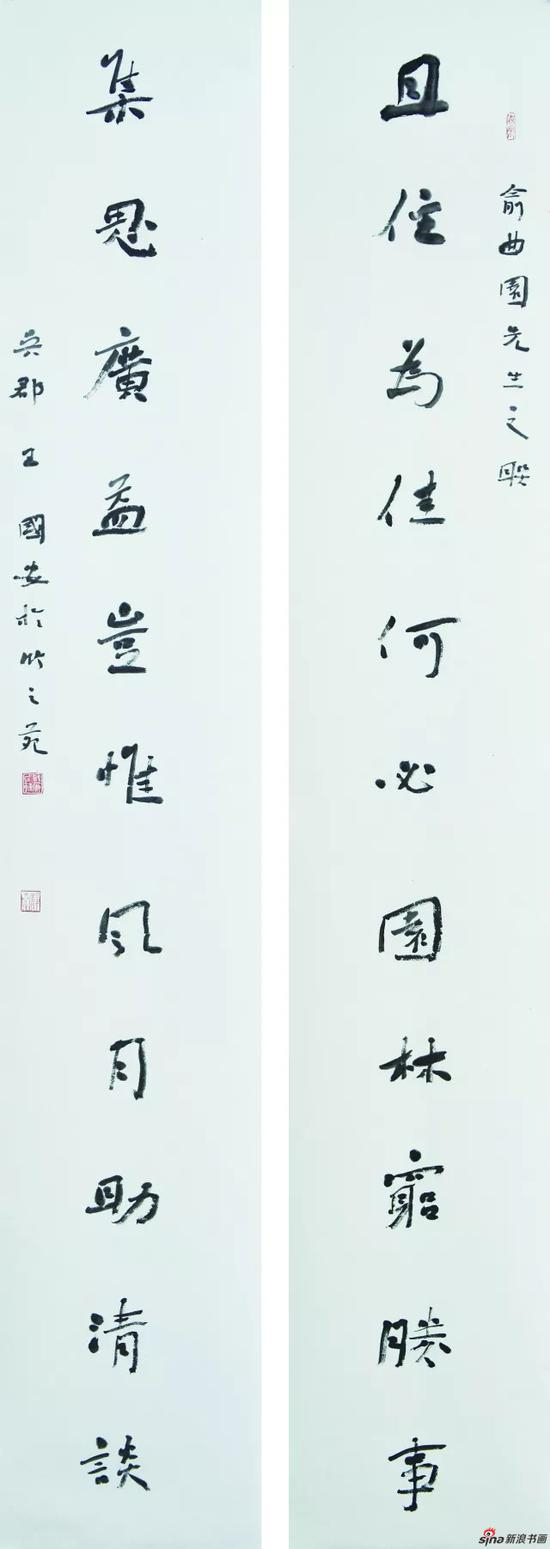 俞曲園先生之聯
且住為佳何必園林窮勝事
集思廣益豈惟風月助清談
吳郡王國安於竹之苑
sina新浪书画